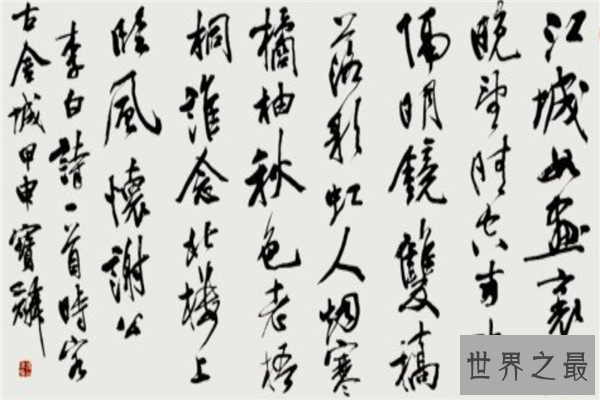 江城如畫裏
晚望晴空两
隔明鏡雙橋
落彩虹人烟寒
橘柚秋色老梧
桐誰念北樓上
臨風懷謝公
李白詩一首時客
古金城甲申寶麟
世界之最